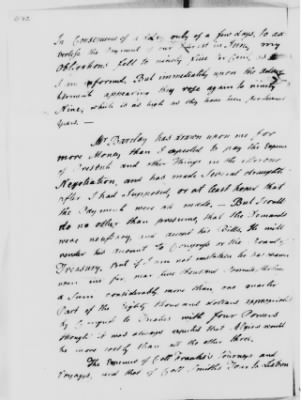 In Consequence of a Delay only of a few days, to ad-
vertise the Payment of our Interest in June, my
Obligations fell to ninety five or Ninety six as
I am informed, But immediately upon the
appearing they rose again to ninety
Nine, which is as high as they have been for some
Years. —
Mr Barclay has drawn upon me, for
more Money than I expected to pay the Expense
of Presents and other Things in the Morocco
Negotiation, and has made Several draughts
after I had Supposed, or at least hoped that
the Payments were all made. — But I could
do no other than presume, that the Demands
were necessary, and accept his Bills. He will
render his account to Congress or the Board of
Treasury. But if I am not mistaken he has drawn
upon me for near five thousand Pounds Sterling
a Sum considerably more than one quarter
Part of the Eighty thousand dollars appropriated
by Congress to Treaties with four Powers
though it was always expected that Algiers would
be more costly than all the other three.
The Expenses of Coll Franks's Journeys and
Voyages, and that of Coll Smith's Tour to Lisbon